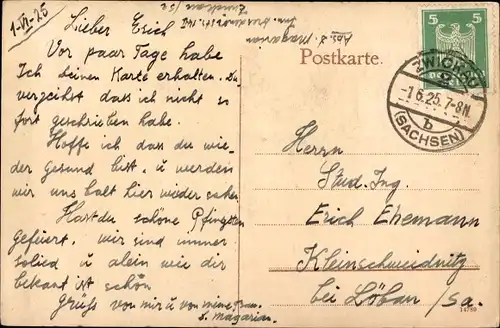 1-VI-25
Lieber Erich
Vor paar Tage habe
Ich deinen Karte erhalten. Du
verzeihst dass ich nicht so
fort geschrieben habe.
Hoffe ich dass du wie-
der gesund bist, u werden
wir uns balt hier wieder sehen
Hast du schöne Pfingsten
gefeiert, wir sind immer
solied u alein wie dir
bekant ist schön
Gruss von mir u von meine Frau
S. Magarian
Abs. S. Magarian
Zwickau i/Sa
Postkarte.
5 5
ZWICKAU
-1.6.25.7-8N.
b
(SACHSEN)
Herrn
Stud. Ing.
Erich Ehemann
Kleinschweidnitz
bei Löbau /sa.
14750